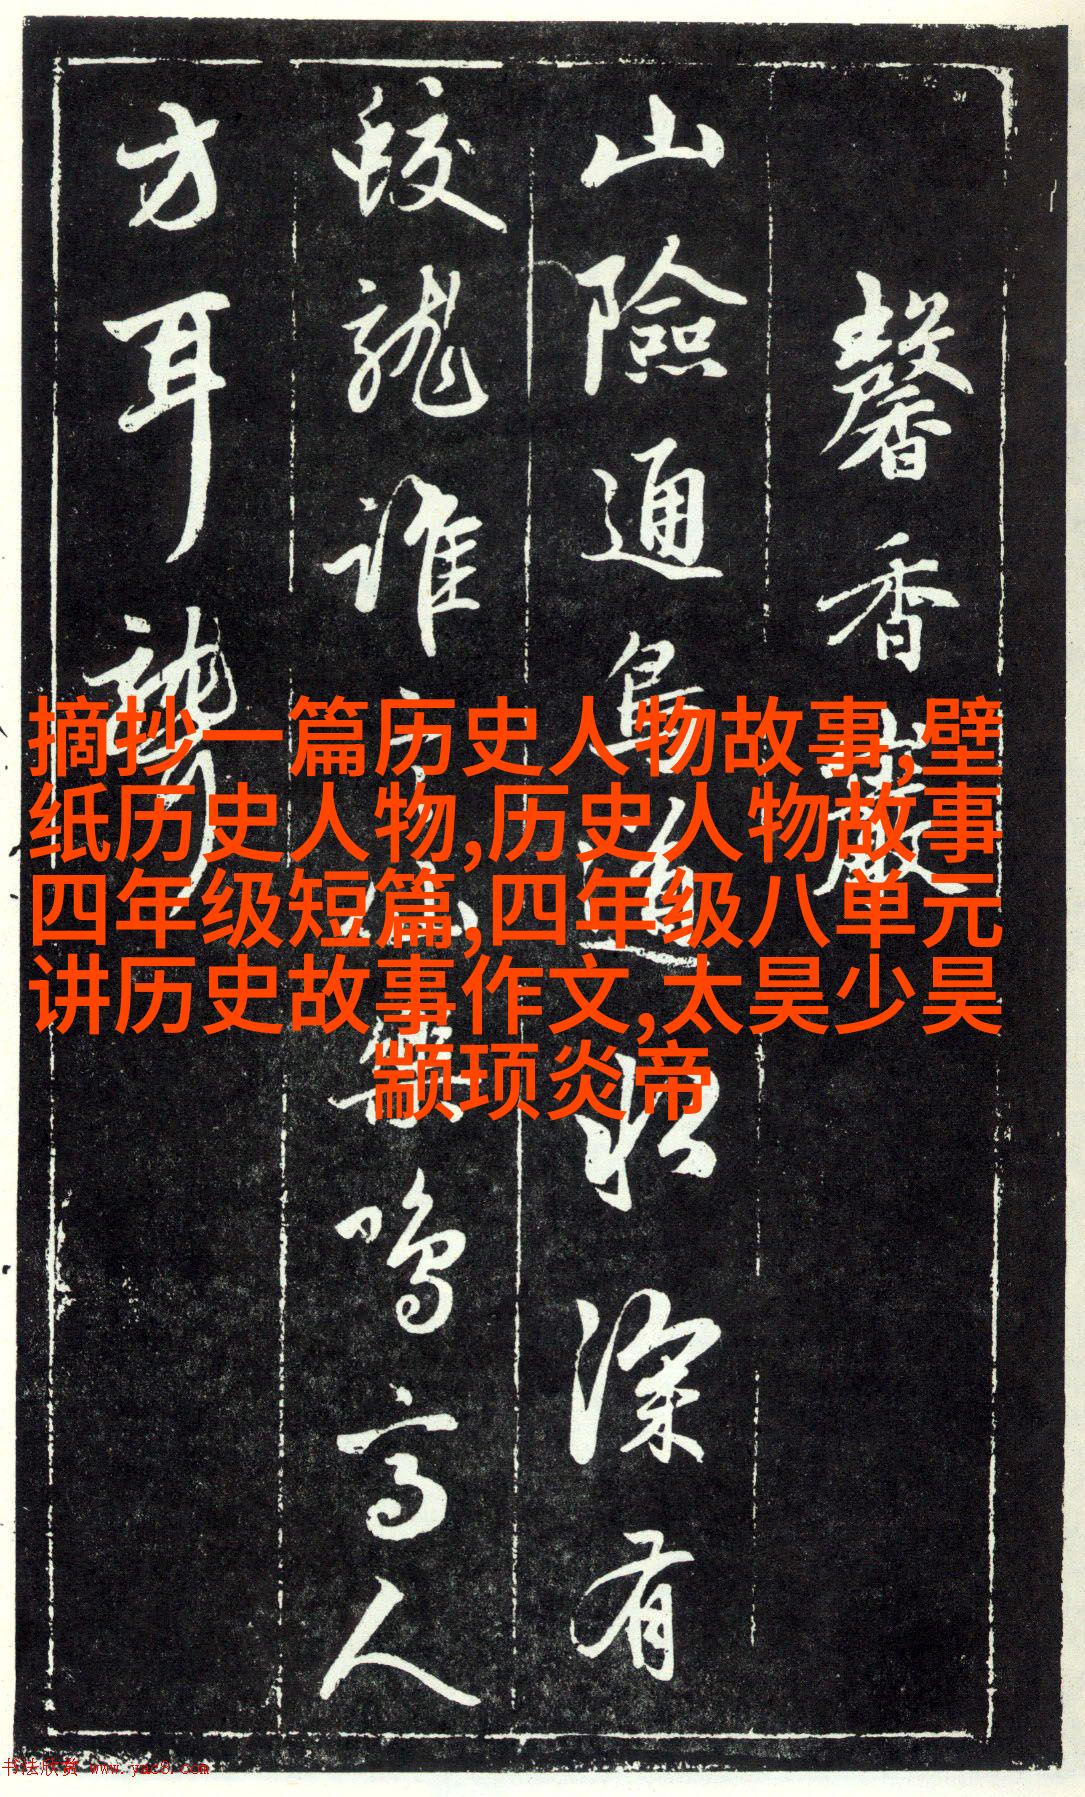 馨香巖
山險通鳥道 深有
蛟龍誰 鳴高人
方耳聾
摘抄一篇历史人物故事,壁
纸历史人物,历史人物故事
四年级短篇,四年级八单元
讲历史故事作文,太昊少昊
颛顼炎帝
书法欣赏 www.yac8.com